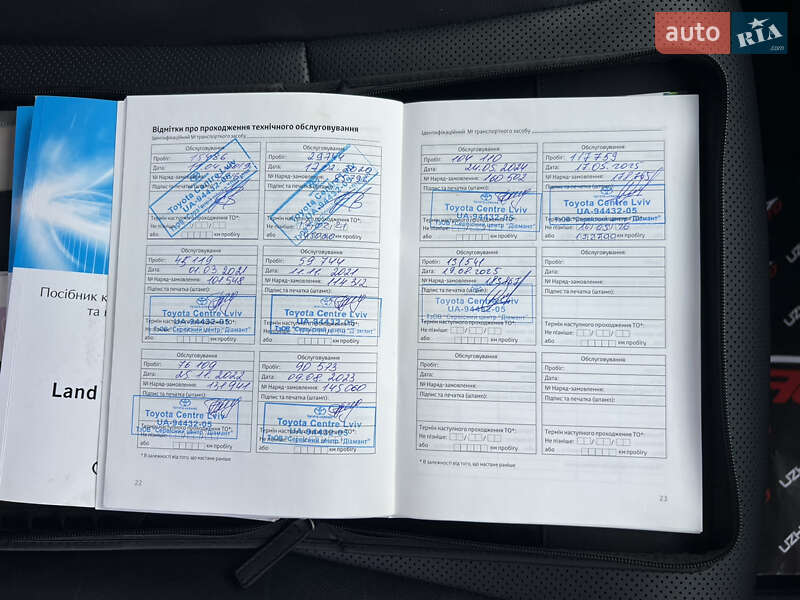 auto RIA.com
Посібник
та
Land
Відмітки про проходження технічного обслуговування
Ідентифікаційний № транспортного засобу
Обслуговування
Пробіг: 15986
Дата:
№ Наряд-замовлення:
Підпис та печатка (штамп):
Toyota Centre Lviv
UA-94432-05
Термін наступного проходження ТО*:
Не пізніше:
або км пробігу
Обслуговування
Пробіг: 29744
Дата:
№ Наряд-замовлення:
Підпис та печатка
Toyota Centre Lviv
UA-94432-05
Термін наступного
Не пізніше:
або км пробігу
Обслуговування
Пробіг: 48 119
Дата: 01.03.2021
№ Наряд-замовлення: 101548
Підпис та печатка (штамп):
Toyota Centre Lviv
UA-94432-05
ТзОВ "Сервісний центр "Діамант"
Термін наступного проходження ТО*:
Не пізніше:
або км пробігу
Обслуговування
Пробіг: 59 744
Дата: 11.11.2021
№ Наряд-замовлення: 114312
Підпис та печатка (штамп):
Toyota Centre Lviv
UA-94432-05
ТзОВ "Сервісний центр "Діамант"
Термін наступного проходження ТО*:
Не пізніше:
або км пробігу
Обслуговування
Пробіг: 76 109
Дата: 25.11.2022
№ Наряд-замовлення: 131941
Підпис та печатка (штамп):
Toyota Centre Lviv
UA-94432-05
ТзОВ "Сервісний центр "Діамант"
Термін наступного проходження ТО*:
Не пізніше:
або км пробігу
Обслуговування
Пробіг: 90 513
Дата: 09.08.2023
№ Наряд-замовлення: 145060
Підпис та печатка (штамп):
Toyota Centre Lviv
UA-94432-05
ТзОВ "Сервісний центр "Діамант"
Термін наступного проходження ТО*:
Не пізніше:
або км пробігу
* В залежності від того, що настане раніше
22
Ідентифікаційний № транспортного засобу
Обслуговування
Пробіг: 104 110
Дата: 24.05.2024
№ Наряд-замовлення: 160582
Підпис та печатка (штамп):
Toyota Centre Lviv
UA-94432-05
ТзОВ "Сервісний центр "Діамант"
Термін наступного проходження ТО*:
Не пізніше:
або км пробігу
Обслуговування
Пробіг: 117753
Дата: 17.05.2025
№ Наряд-замовлення:
Підпис та печатка (штамп):
Toyota Centre Lviv
UA-94432-05
ТзОВ "Сервісний центр "Діамант"
Термін наступного проходження ТО*:
Не пізніше:
або км пробігу
Обслуговування
Пробіг: 131541
Дата: 19.08.2025
№ Наряд-замовлення:
Підпис та печатка (штамп):
Toyota Centre Lviv
UA-94432-05
ТзОВ "Сервісний центр "Діамант"
Термін наступного проходження ТО*:
Не пізніше:
або км пробігу
Обслуговування
Пробіг:
Дата:
№ Наряд-замовлення:
Підпис та печатка (штамп):
Термін наступного проходження ТО*:
Не пізніше:
або км пробігу
Обслуговування
Пробіг:
Дата:
№ Наряд-замовлення:
Підпис та печатка (штамп):
Термін наступного проходження ТО*:
Не пізніше:
або км пробігу
Обслуговування
Пробіг:
Дата:
№ Наряд-замовлення:
Підпис та печатка (штамп):
Термін наступного проходження ТО*:
Не пізніше:
або км пробігу
* В залежності від того, що настане раніше
23